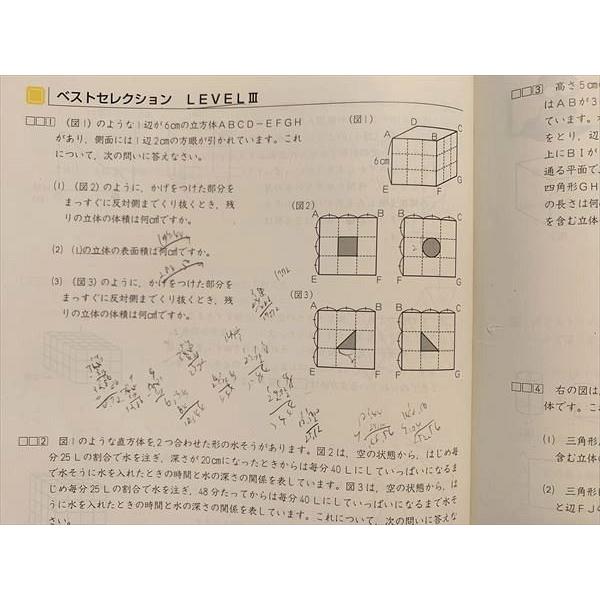 ベストセレクション LEVEL Ⅲ
□□1 (図1)のような1辺が6cmの立方体ABCD－EFGH
があり，側面には1辺2cmの方眼が引かれています。これ
について，次の問いに答えなさい。
(1) (図2)のように，かげをつけた部分を
まっすぐに反対側までくり抜くとき，残
りの立体の体積は何cm³ですか。
(2) (1)の立体の表面積は何cm²ですか。
(3) (図3)のように，かげをつけた部分を
まっすぐに反対側までくり抜くとき，残
りの立体の体積は何cm³ですか。
(図1)
D
A
B
C
6cm
E
F
G
(図2)
A B B C
E F F G
(図3)
A B B C
E F F G
□□2 図1のような直方体を2つ合わせた形の水そうがあります。図2は，空の状態から，はじめ毎
分25Lの割合で水を注ぎ，深さが20cmになったときからは毎分40Lにしていっぱいになるま
で水そうに水を入れたときの時間と水の深さの関係を表しています。図3は，空の状態から，は
じめ毎分25Lの割合で水を注ぎ，48分たってからは毎分40Lにしていっぱいになるまで水そ
うに水を入れたときの時間と水の深さの関係を表しています。これについて，次の問いに答えな
さい。
□□3 高さ5cm
はABが3
ています。
をとり，辺
上にBIが
通る平面で
四角形GH
の長さは何
を含む立体
□□4 右の図は
体です。こ
(1) 三角形
含む立体
(2) 三角形
と辺FJの